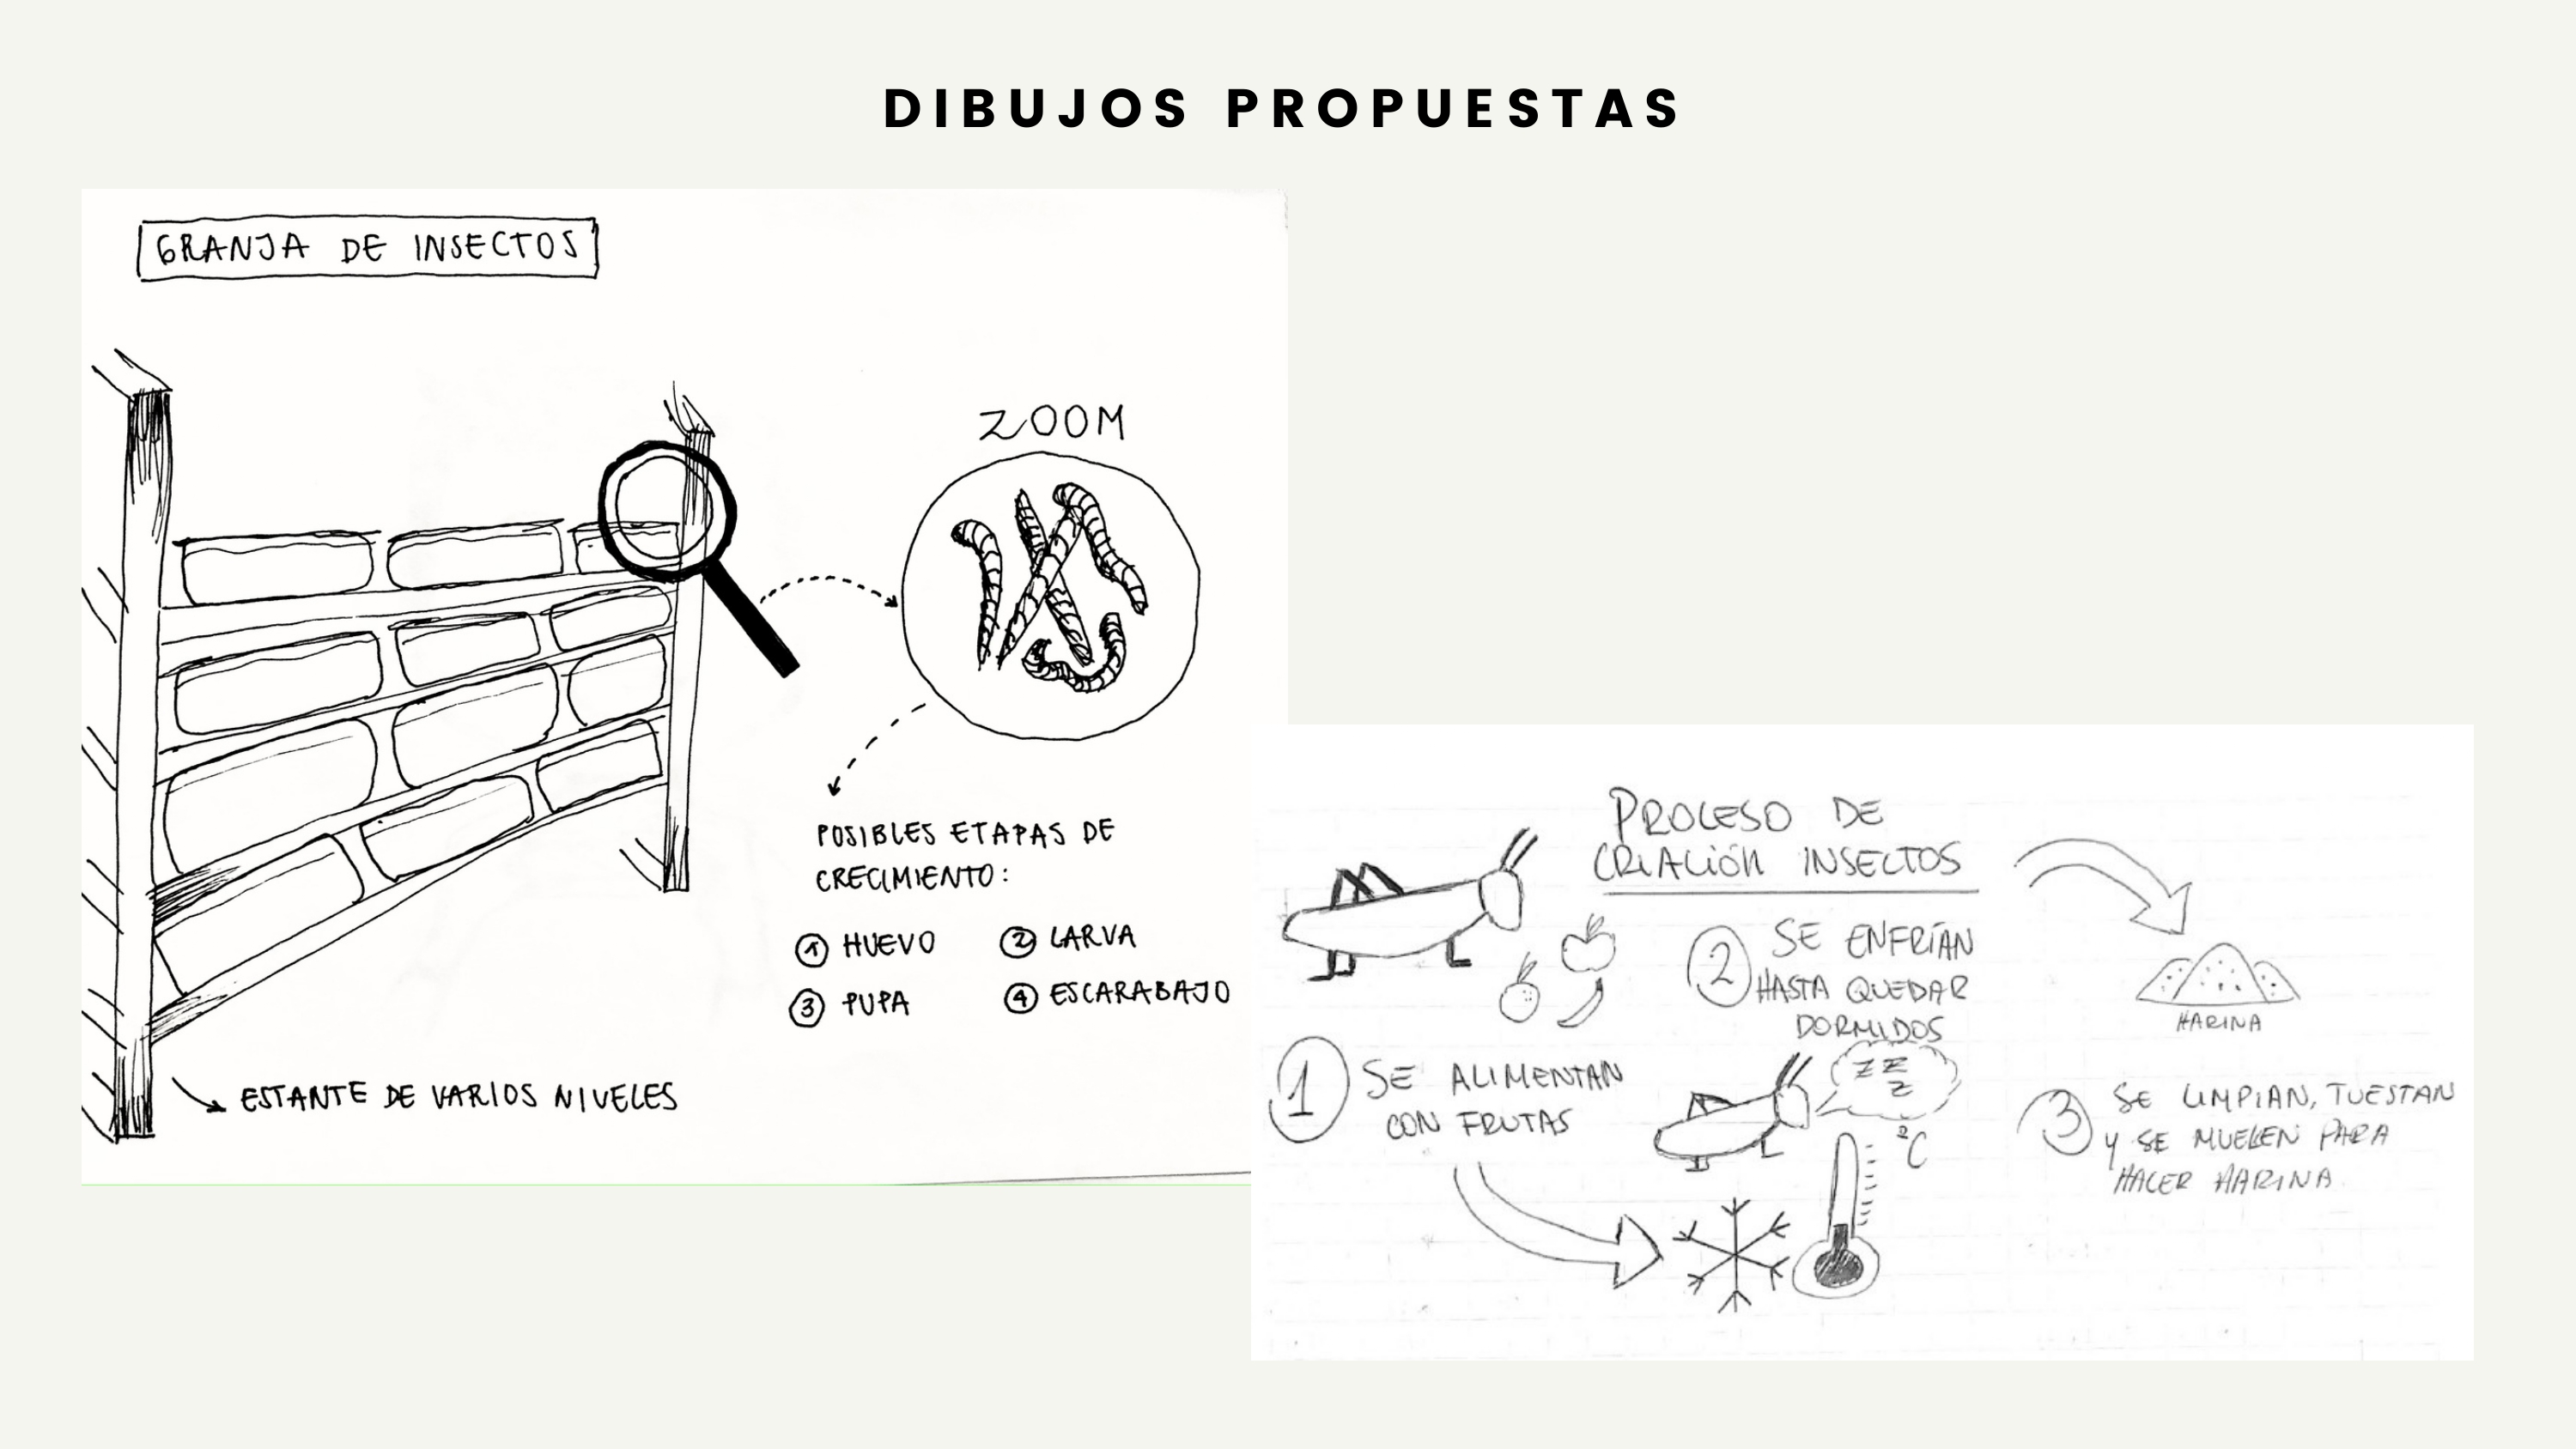 DIBUJOS PROPUESTAS
GRANJA DE INSECTOS
ZOOM
POSIBLES ETAPAS DE
CRECIMIENTO:
1 HUEVO 2 LARVA
3 PUPA 4 ESCARABAJO
ESTANTE DE VARIOS NIVELES
PROCESO DE
CRIACIÓN INSECTOS
1 SE ALIMENTAN
CON FRUTAS
2 SE ENFRÍAN
HASTA QUEDAR
DORMIDOS
ZZ
Z
ºC
HARINA
3 SE LIMPIAN, TUESTAN
Y SE MUELEN PARA
HACER HARINA.